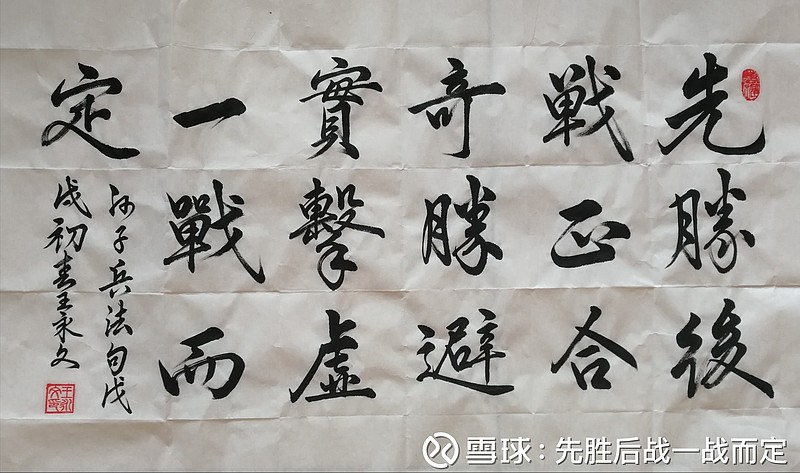 先勝後
戦正合
奇勝避
實擊虛
一戰而
定
孙子兵法句戊
戌初春王永文
雪球：先胜后战一战而定